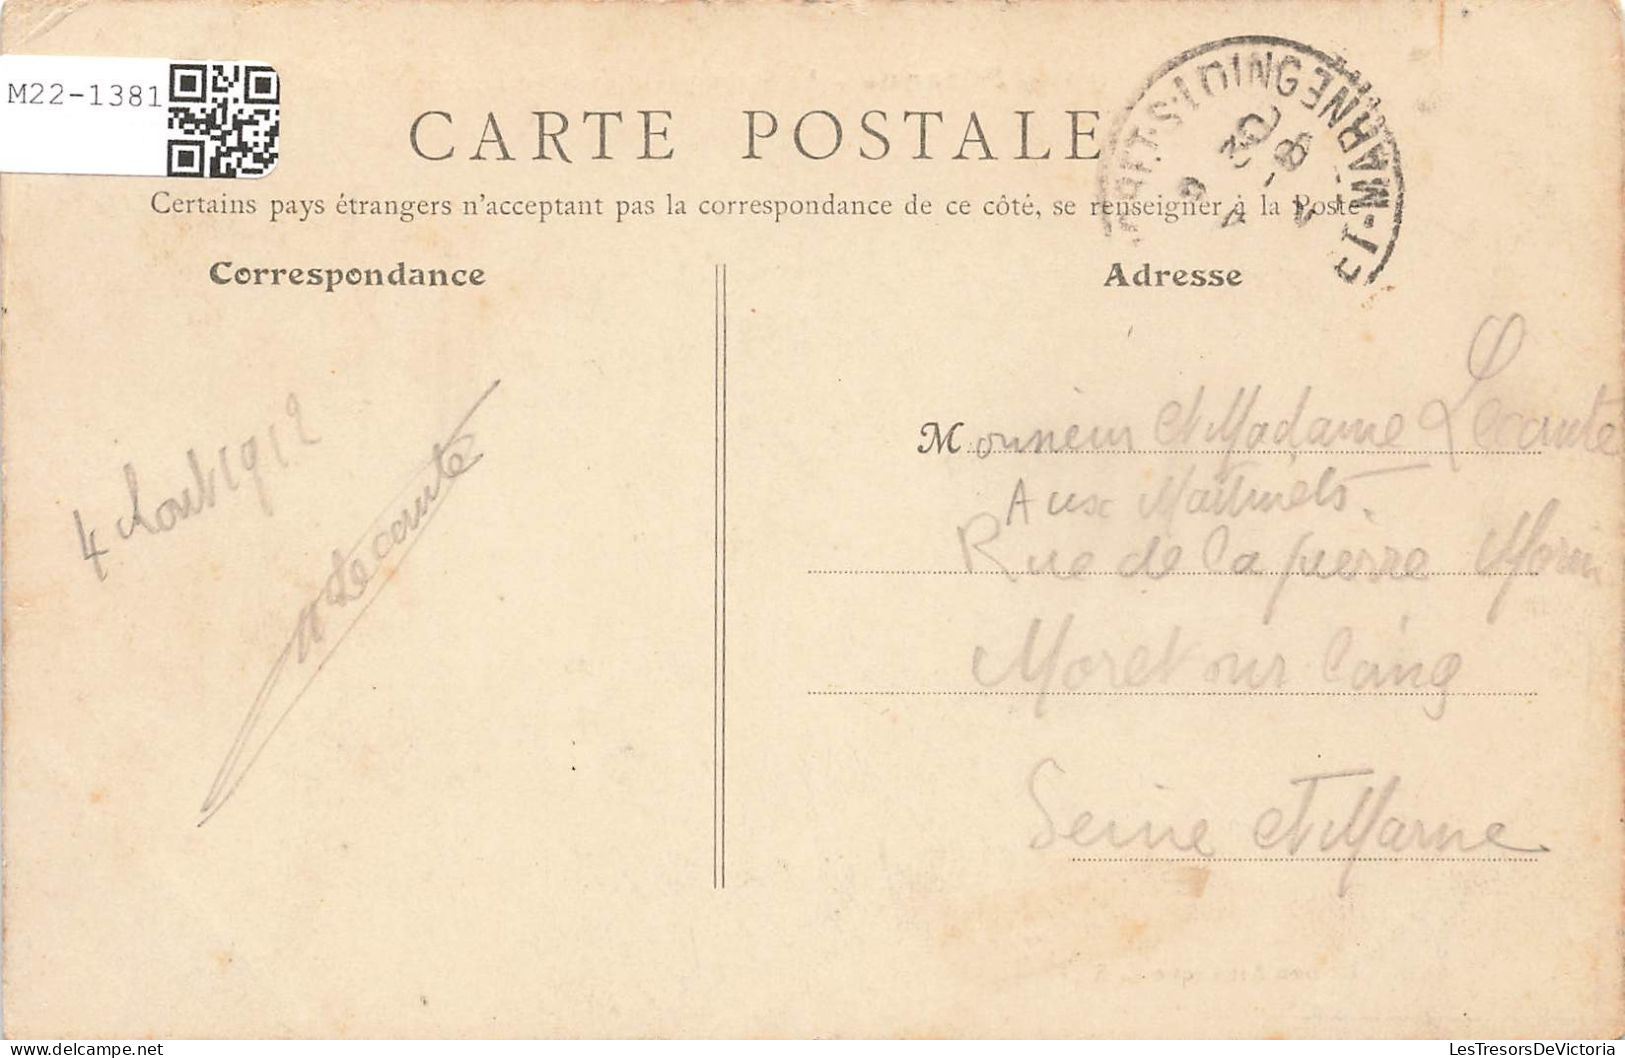 M22-1381
CARTE POSTALE
Certains pays étrangers n'acceptent pas la correspondance de ce côté, se renseigner à la Poste
Correspondance
Adresse
4 Aout 1912
Lecante
Monsieur et Madame Lecante
Aux
Rue de la pierre
Moret sur Loing
Seine et Marne
LesTresorsDeVictoria